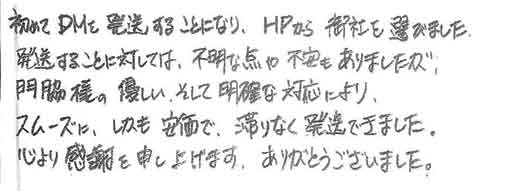 初めてDMを発送することになり、HPから御社を選びました。
発送することに対しては、不明な点や不安もありましたが、
門脇様の優しい、そして明確な対応により、
スムーズに、しかも安価で、滞りなく発送できました。
心より感謝を申し上げます。ありがとうございました。